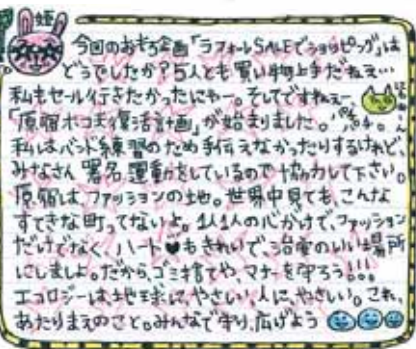 姫
今回のおもろ企画「ラフォーレSALEでショッピング」は
どうでしたか？5人とも買い物上手だねぇ…
私もセール行きたかったにゃー。そしてですねぇー
「原宿ホコ天復活計画」が始まりました。パチ。パチ。
私はバンド練習のため手伝えなかったりするけれど、
みなさん署名運動をしているので協力して下さい。
原宿は、ファッションの地。世界中見ても、こんな
すてきな町ってないよ。1人1人の心がけで、ファッション
だけでなく、ハート♥もきれいで、治安のいい場所
にしましょ。だから、ゴミ捨てや、マナーを守ろう!!!
エコロジーは、地球に、やさしい、人に、やさしい。これ、
あたりまえのこと。みんなで守り、広げよう